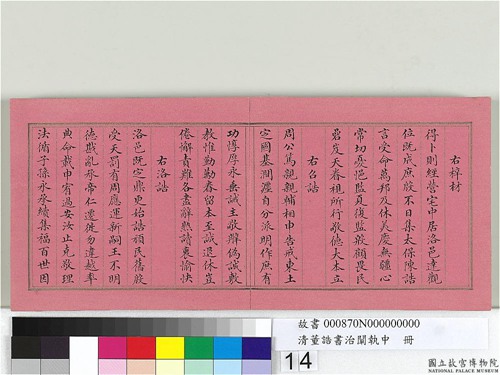 右梓材
得卜則經營宅中居洛邑達觀
位既成庶殷不日集太保陳誥
言受命萬邦及休美慶無疆心
常切憂悒監夏復監殷顧畏民
碞度天眷祖所行敬德大本立
右召誥
周公篤親親輔相申告戒東土
定國基澗瀍自分派明作庶有
功惇厚永垂誡主敬辨偽誠敷
教惟勤勤眷留本至誠退休豈
倦懈責難各盡辭熟讀衷愉快
右洛誥
洛邑既定鼎更始誥頑民舊殷
受天罰有周應運新嗣王不明
德戡亂承帝仁遷徙勿違越率
典命載申宥過安汝止克敬理
法循子孫永承續集福百世因
故書 000870N000000000
清董誥書治闡執中 冊
14
國立故宮博物院
NATIONAL PALACE MUSEUM